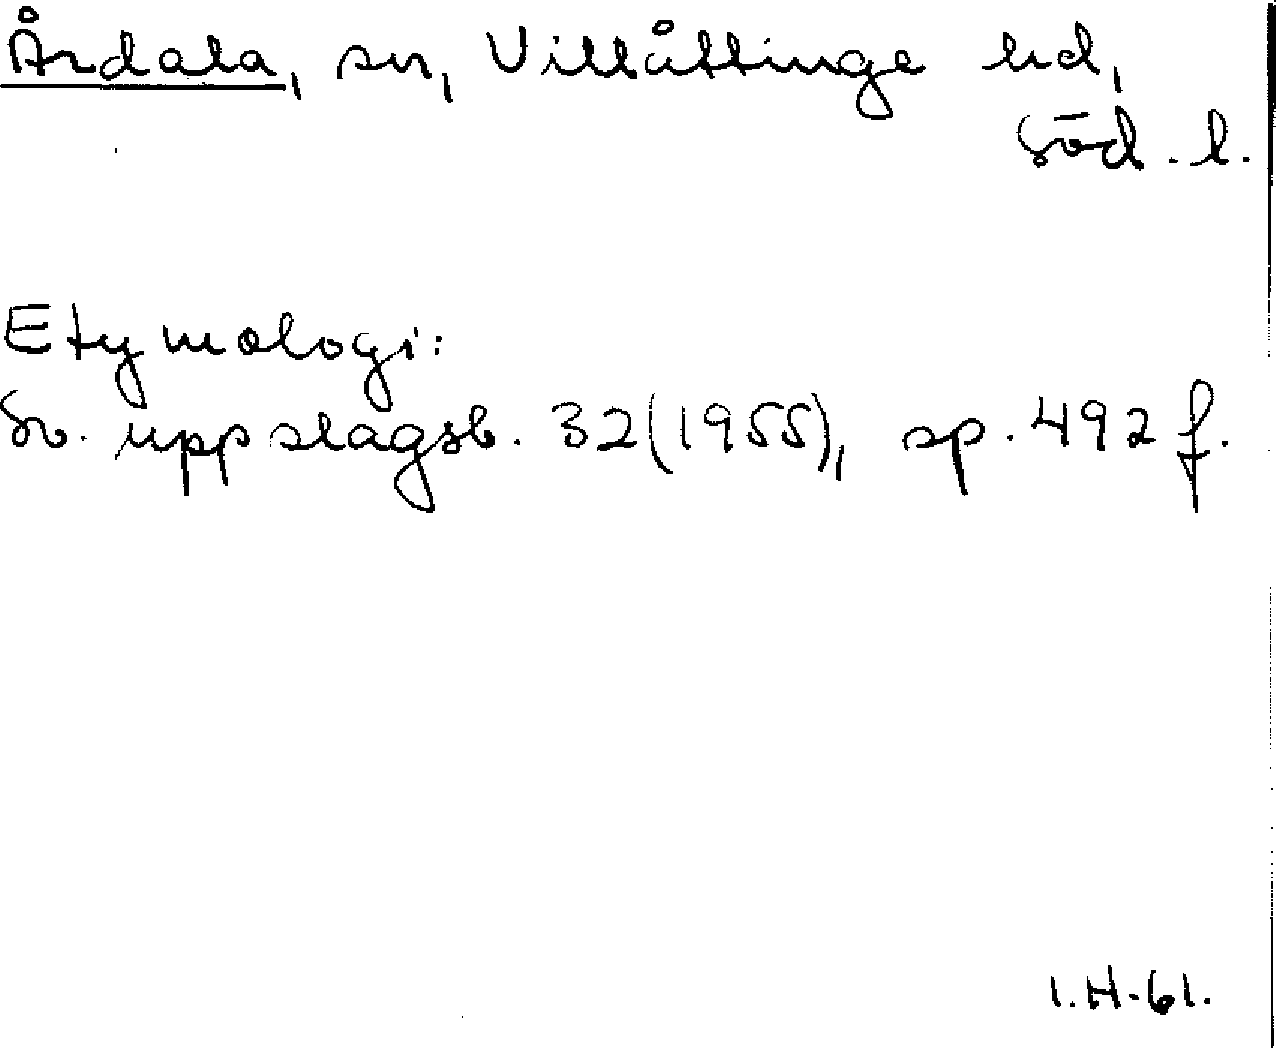 Årdala, sn, Villåttinge hd,
Söd. l.
Etymologi:
Sv. uppslagsb. 32(1955), sp. 492 f.
I.H-61.